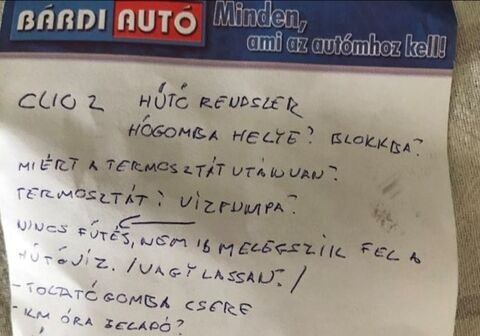 BÁRDI AUTÓ Minden,
ami az autómhoz kell!
CLIO 2 HŰTŐ RENDSZER
HŐGOMBA HELYE? BLOKKBA?
MIÉRT A TERMOSZTÁT UTÁN VAN?
TERMOSZTÁT? VÍZPUMPA?
NINCS FŰTÉS, NEM IS MELEGSZIK FEL A
HŰTŐVÍZ. /VAGY LASSAN?/
- TOLATÓGOMBA CSERE
- KM ÓRA JELADÓ?